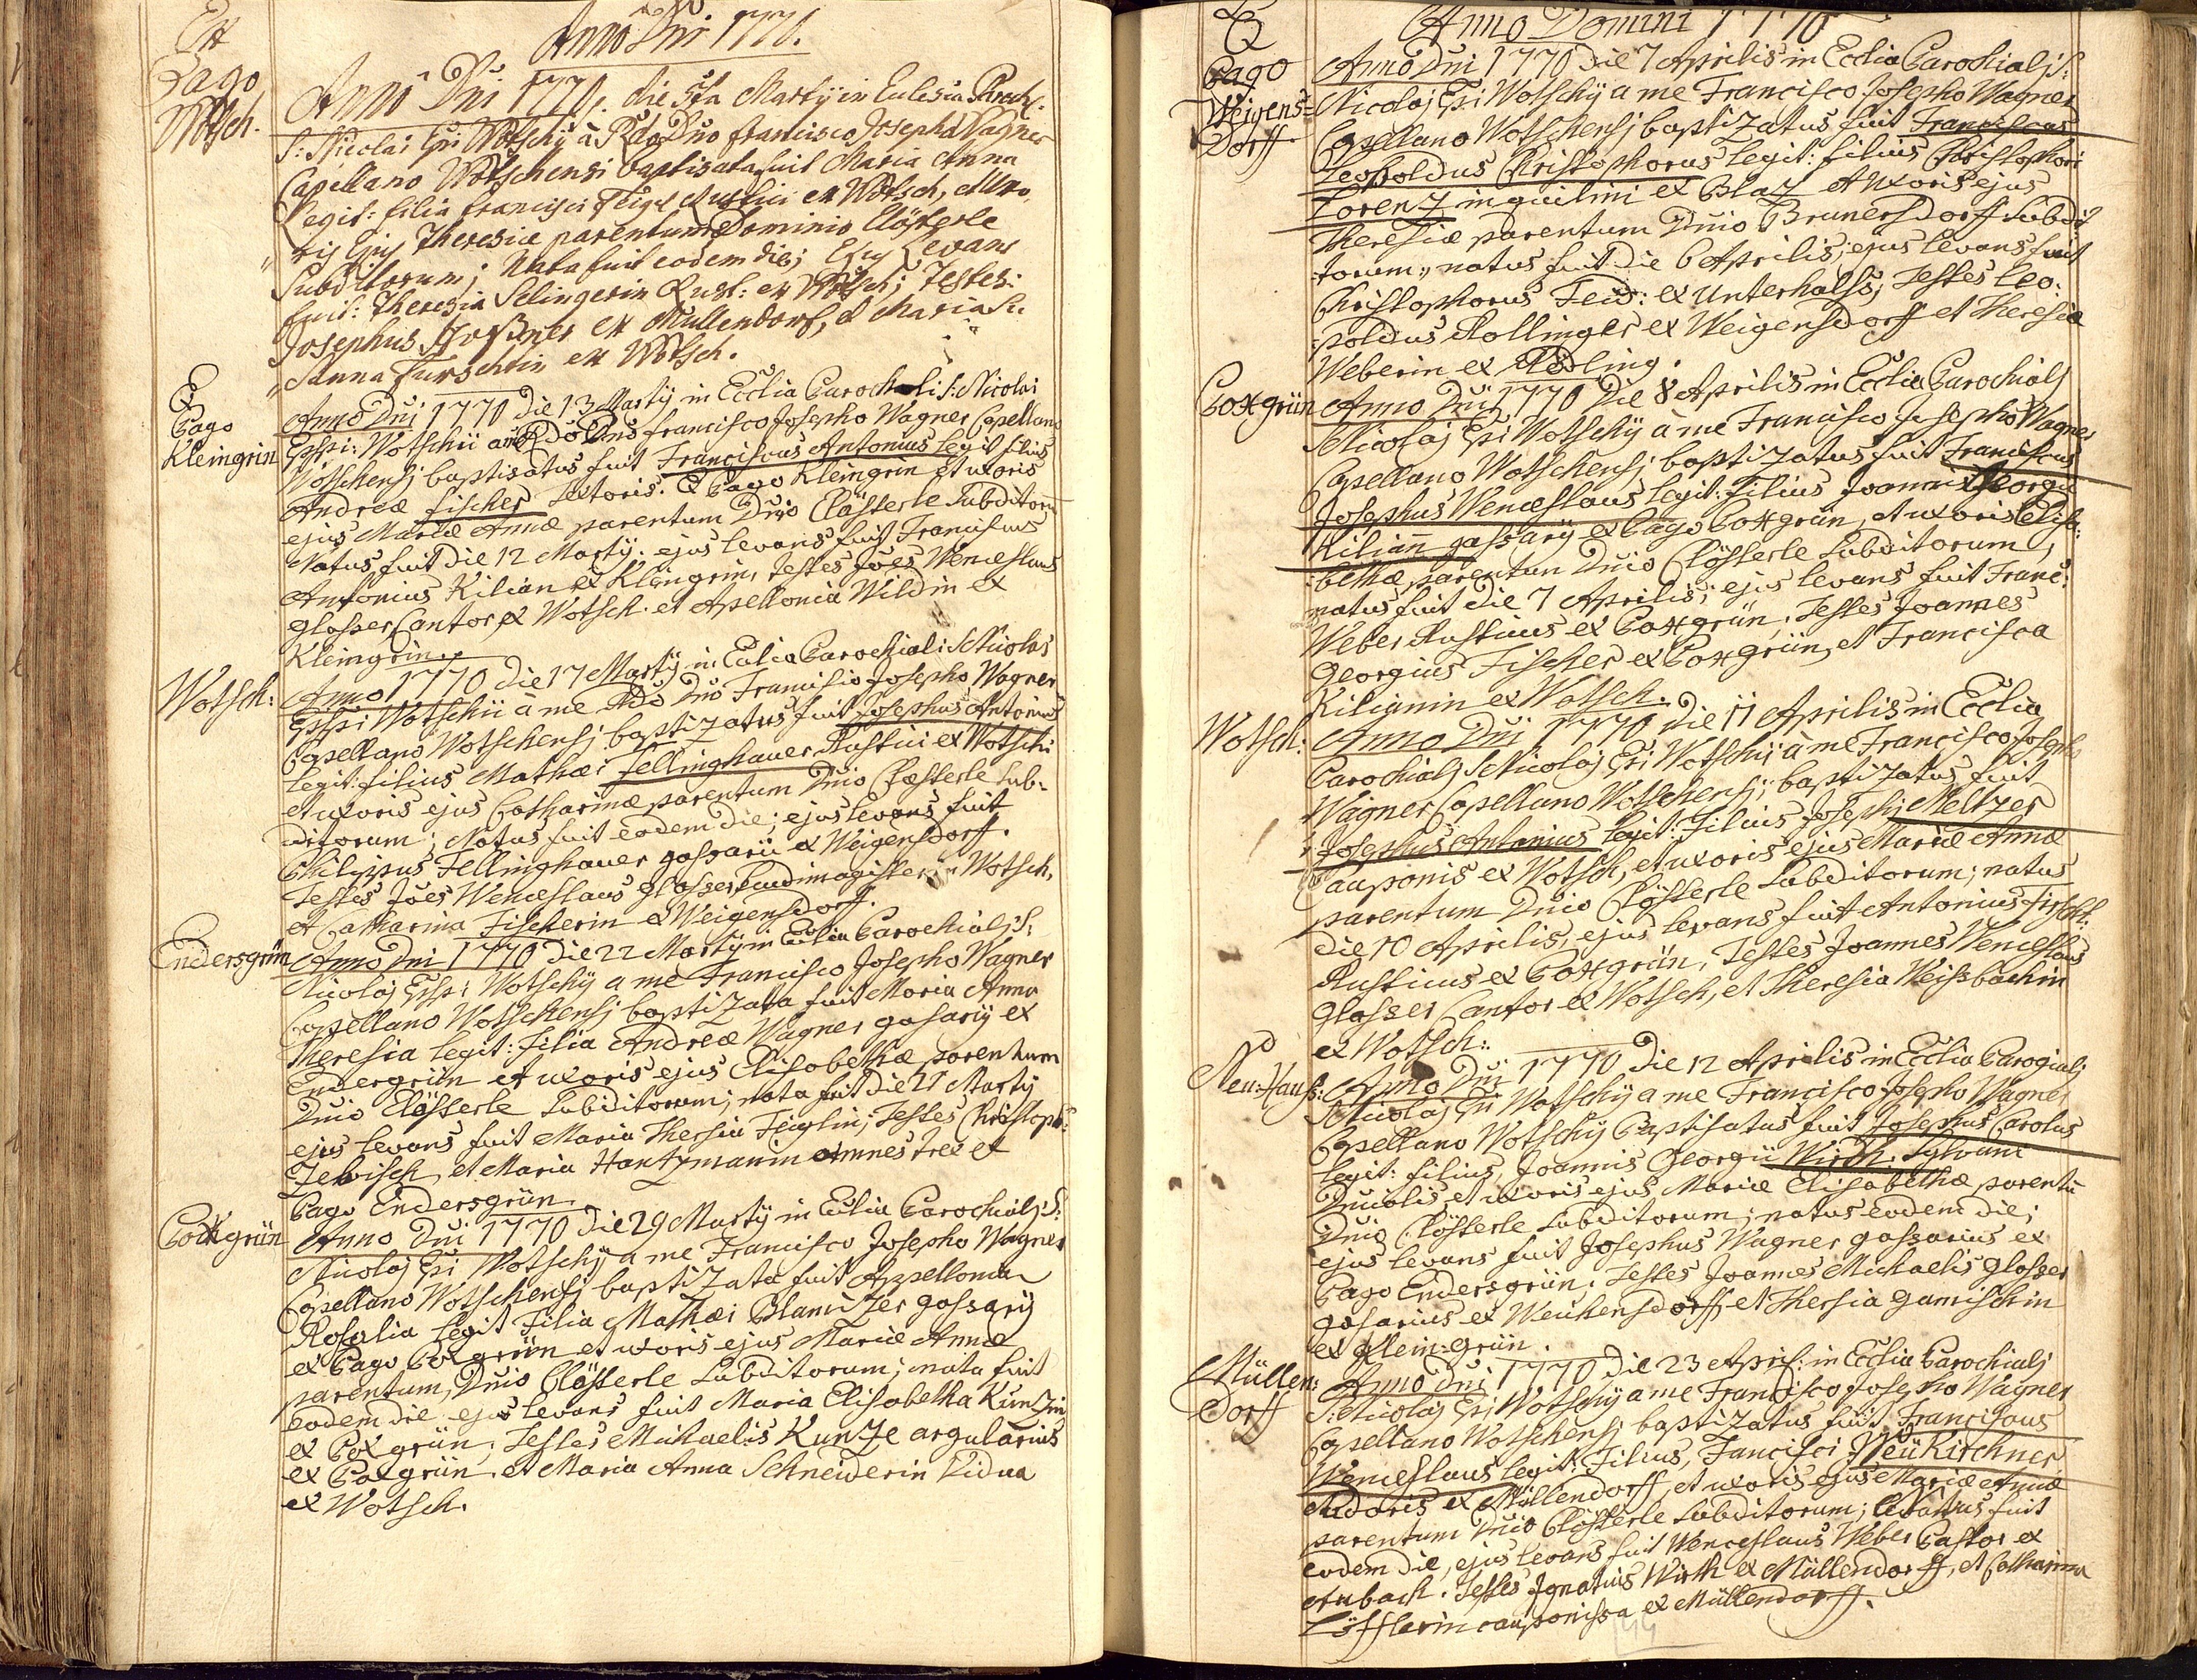 Ex
Pago
Wotsch.
Anno Dni 1770.
Anno Dni 1770. die 5ta Martÿ in Eclesia Paroch.
S: Nicolai Epi Wotschÿ à Rdo Dno Francisco Josepho Wagner
Capellano Wotschensi baptisata fuit Maria Anna
Legit: filia Francisci Feigl Rustici ex Wotsch, et Uxo,
ris Ejus Theresiæ parentum Dominio Clösterle
Subditorum; Nata fuit eodem die; Ejus Levans
fuit: Theresia Selingerin Rust: ex Wotsch; Testes:
Josephus ex Mullendorf, et Maria
Anna ex Wotsch.
Ex
Pago
Kleingrin
Anno Dni 1770 Die 13 Martÿ in Ecclia Parochali S: Nicolai
Eppi: Wotschii a me Rdo Dno Francisco Josepho Wagner Capellano
Wotschensj baptisatus fuit Franciscus Antonius Legit filius
Andreæ Fischer Sutoris. Ex Pago Kleingrin et uxoris
ejus Mariæ Annæ parentum Dnio Clösterle Subditoru
Natus fuit die 12 Martÿ. ejus levans fuit Franciscus
Antonius Kilian ex Kleingrin, Testes Joes Wenceslaus
glosser Cantor ex Wotsch. et Apellonia Wildin ex
Kleingrin.
Wotsch:
Anno 1770 Die 17 Martÿ in Eclia Parochiali S Nicolas
Eppi Wotschii à me Rdo Dno Francisco Josepho Wagner
Capellano Wotschensj baptizatus fuit Josephus Antonius
legit: filius Mathæi Fellinghauer Rustici ex Wotsch:
et uxoris ejus Catharinæ parentum Dnio Clösterle Sub:
ditorum; Natus fuit eodem die; ejus levans fuit
Philippus Fellinghauer gassarii ex Weigensdorff.
Testes Joes Wenceslaus glosser Ludimagister in Wotsch,
et Catharina Fischerin ex Weigensdorff.
Endersgrün
Anno Dni 1770 Die 22 Martÿ in Eclia Parochialj S:
Nicolaj Eppi Wotschÿ a me Francisco Josepho Wagner
Capellano Wotschensj baptizata fuit Maria Anna
Theresia legit: filia Andreæ Wagner gasarÿ ex
Endergrün et uxoris ejus Elisabethæ parentum
Dnio Clösterle Subiditorum; nata fuit die 21 Martÿ
ejus levans fuit Maria Thersia Feiglin; Testes Christoph:
Zebisch et Maria Hantzmanin omnes tres ex
Pago Endersgrün.
Poxgrün
Anno Dni 1770 Die 29 Martÿ in Eclia Parochialj S:
Nicolaj Epi Wotschÿ a me Francisco Josepho Wagner
Capellano Wotschensj baptizata fuit Appellonia
Rosalia legit Filia Mathæi Blamizer gassarÿ
ex Pago Poxgrün et uxoris ejus Mariæ Annæ
parentum, Dnio Clösterle Subditorum; nata fuit
eodem die ejus levans fuit Maria Elisabetha Kunzin
ex Poxgrün, Testes Michaelis Kunze argularius
ex Poxgrün et Maria Anna Schneiderin Vidua
ex Wotsch.
Anno Domini 1770
Ex
Pago
Weigens=
Dorff
Anno Dni 1770 Die 7 Aprilis in Ecclia Parochialj S:
Nicolaj Epi Wotschÿ a me Francisco Josepho Wagner
Capellano Wotschensj baptizatus fuit Franciscus
Leopoldus Christophorus legit: filius Christophori
Lorenz inquilini ex Blaz et Uxoris ejus
Theresiæ parentum Dnio Brunersdorff Subdi
torum, natus fuit Die 6 Aprilis; ejus levans fuit
Christophorus Feid: ex Unterhalss; Testes Leo:
poldus Kollinger ex Weigensdorff et Theresia
Weberin ex Rödling.
Poxgrün
Anno Dni 1770 Die 8 Aprilis in Ecclia Parochialj
S Nicolaj Epi Wotschÿ à me Francisco Josepho Wagner
Capellano Wotschensj baptizatus fuit Franciscus
Josephus Wenceslaus legit: filius Joannis Georgii
Kiliann gassarÿ ex Pago Poxgrün et uxoris Elisa:
bethæ parentum Dnio Clösterle Subditorum;
natus fuit Die 7 Aprilis; ejus levans fuit Franc:
Weber Rusticus ex Poxgrün; Testes Joannes
Georgius Fischer ex Poxgrün, et Francisca
Kilianin ex Wotsch.
Wotsch:
Anno Dni 1770 Die 11 Aprilis in Ecclia
Parochialj S Nicolaj Epi Wotschÿ à me Francisco Josepho
Wagner Capellano Wotschensj; baptizatus fuit
Josephus Antonius legit: Filius Josephj Meltzer
Cauponis ex Wotsch, et uxoris ejus Mariæ Annæ
parentum Dnio Clösterle Subditorum; natus
die 10 Aprilis, ejus levans fuit Antonius Firscht:
Rusticus ex Poxgrün, Testes Joannes Wenceslaus
Glosser Cantor ex Wotsch, et Theresia Weissbachin
ex Wotsch:
Neu-Hauss:
Anno Dni 1770 Die 12 Aprilis in Ecclia Parogialj
S Nicolaj Epi Wotschÿ a me Francisco Josepho Wagner
Capellano Wotschÿ Baptisatus fuit Josephus Carolus
legit: filius, Joannis Georgii Wirth, Sylvani
Dnicalis, et uxoris ejus Mariæ Elisabethæ parentu
Dnio Clösterle Subditorum; natus eodem die;
ejus levans fuit Josephus Wagner gassarius ex
Pago Endersgrün. Testes Joannes Michaelis glosser
gasarius ex Weukensdorff et Thersia Gamischin
ex Klein=grün.
Müllen:
Dorff
Anno Dni 1770 Die 23 April: in Ecclia Parochialj
S: Nicolaj Epi Wotschÿ a me Francisco Josepho Wagner
Capellano Wotschensj baptizatus fuit Franciscus
Wenceslaus legit: Filius, Fancisci Neükirchner
ex Müllendorff, et uxoris ejus Mariæ Annæ
parentum Dnio Clösterle Subditorum; natus fuit
eodem die, ejus levans fuit Wenceslaus Weber Pastor ex
Aubach. Testes Ignatius Wirth ex Müllendorff, et Catharina
Löfflerin cauponissa ex Müllendorff.